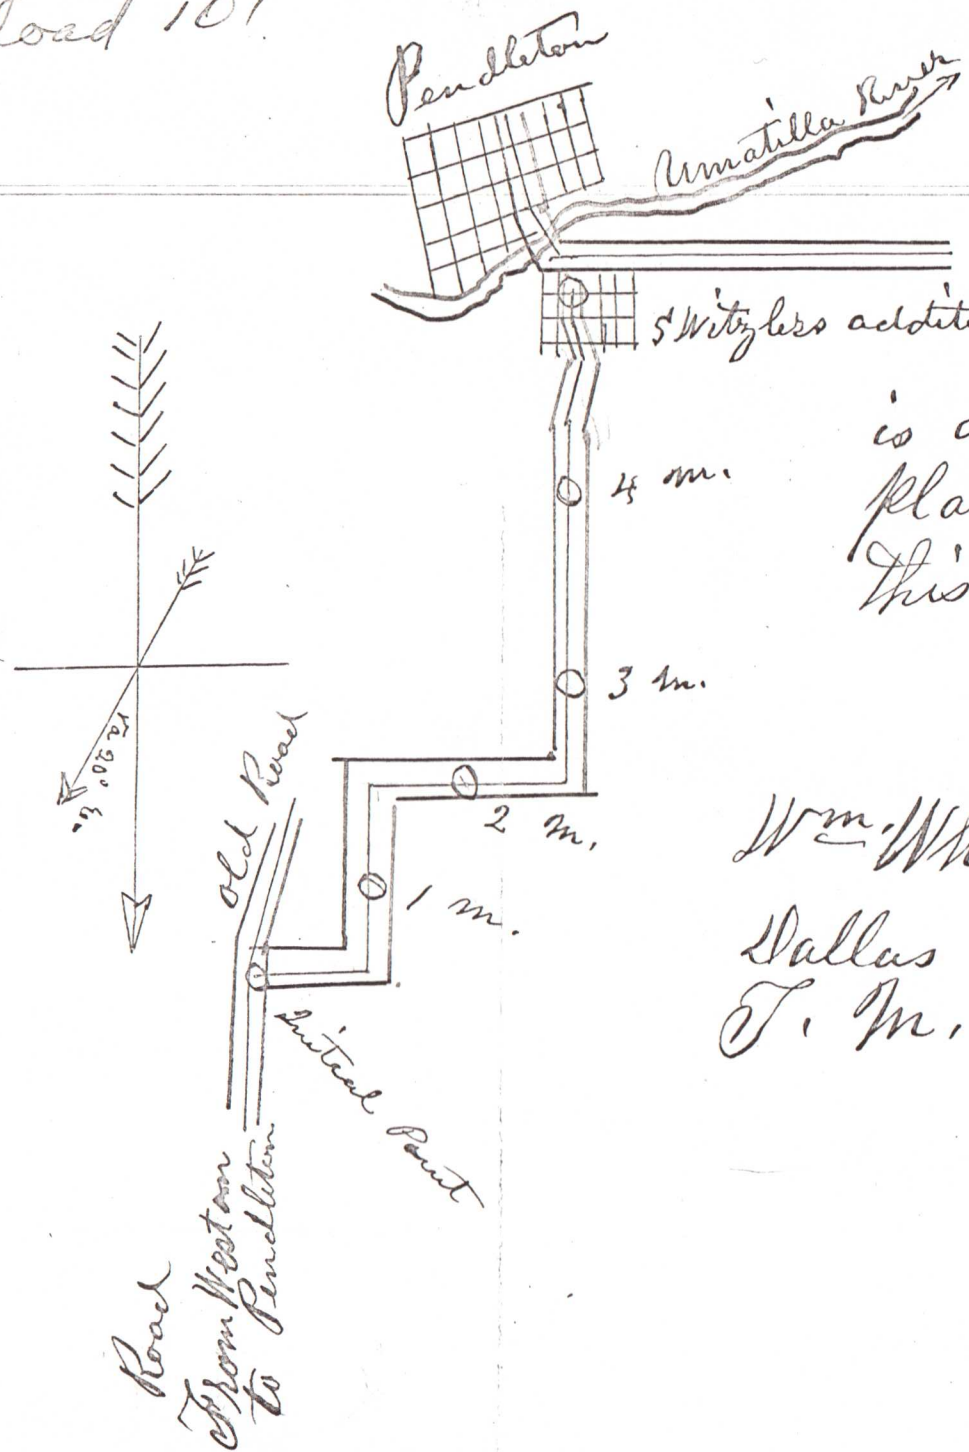 Road 101
Pendleton
Umatilla River
Switzlers addit
4 m.
is
Pla
This
3 m.
Old Road
2 m.
Wm. Wh
1 m.
Dallas
T. M.
Initial Point
Road
From Weston
to Pendleton